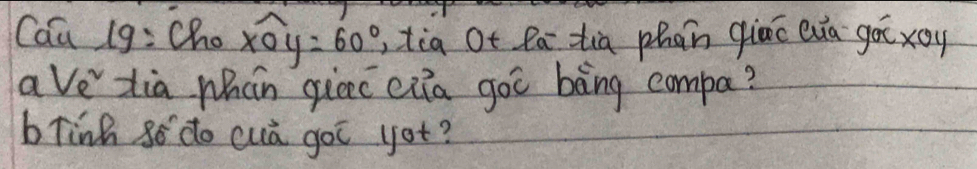 Câu 19: Cho xÔy = 60°, tia Ot là tia phân giác của góc xoy
a Vẽ tia phân giác của góc bằng compa?
b Tính số đo của góc yot?